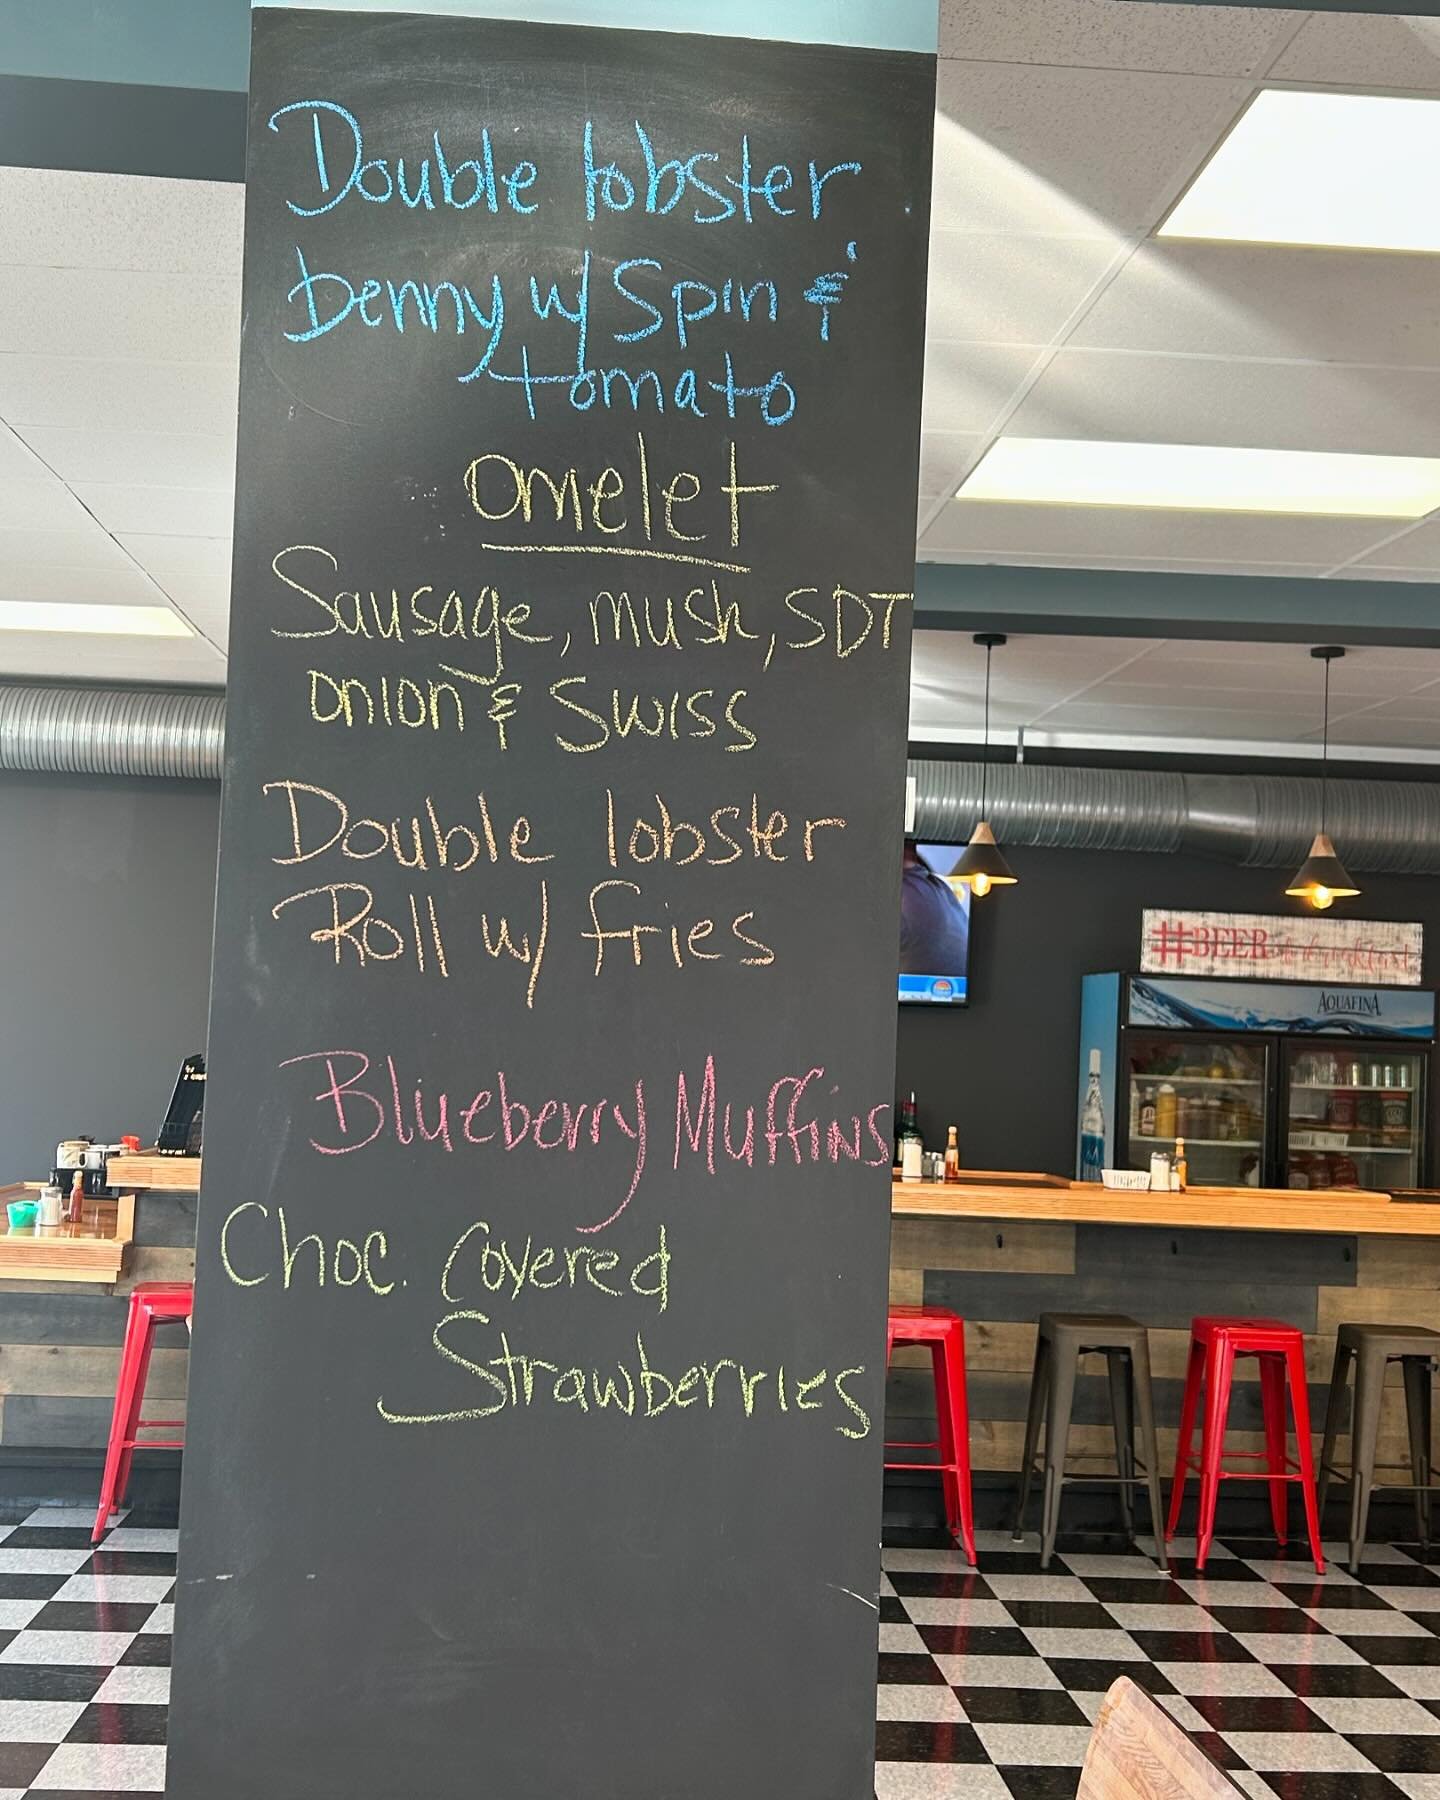 Double lobster
benny w/ Spin &
tomato
omelet
Sausage, mush, SDT
onion & Swiss
Double lobster
Roll w/ fries
Blueberry Muffins
Choc. Covered
Strawberries
#BEER
AQUAFINA